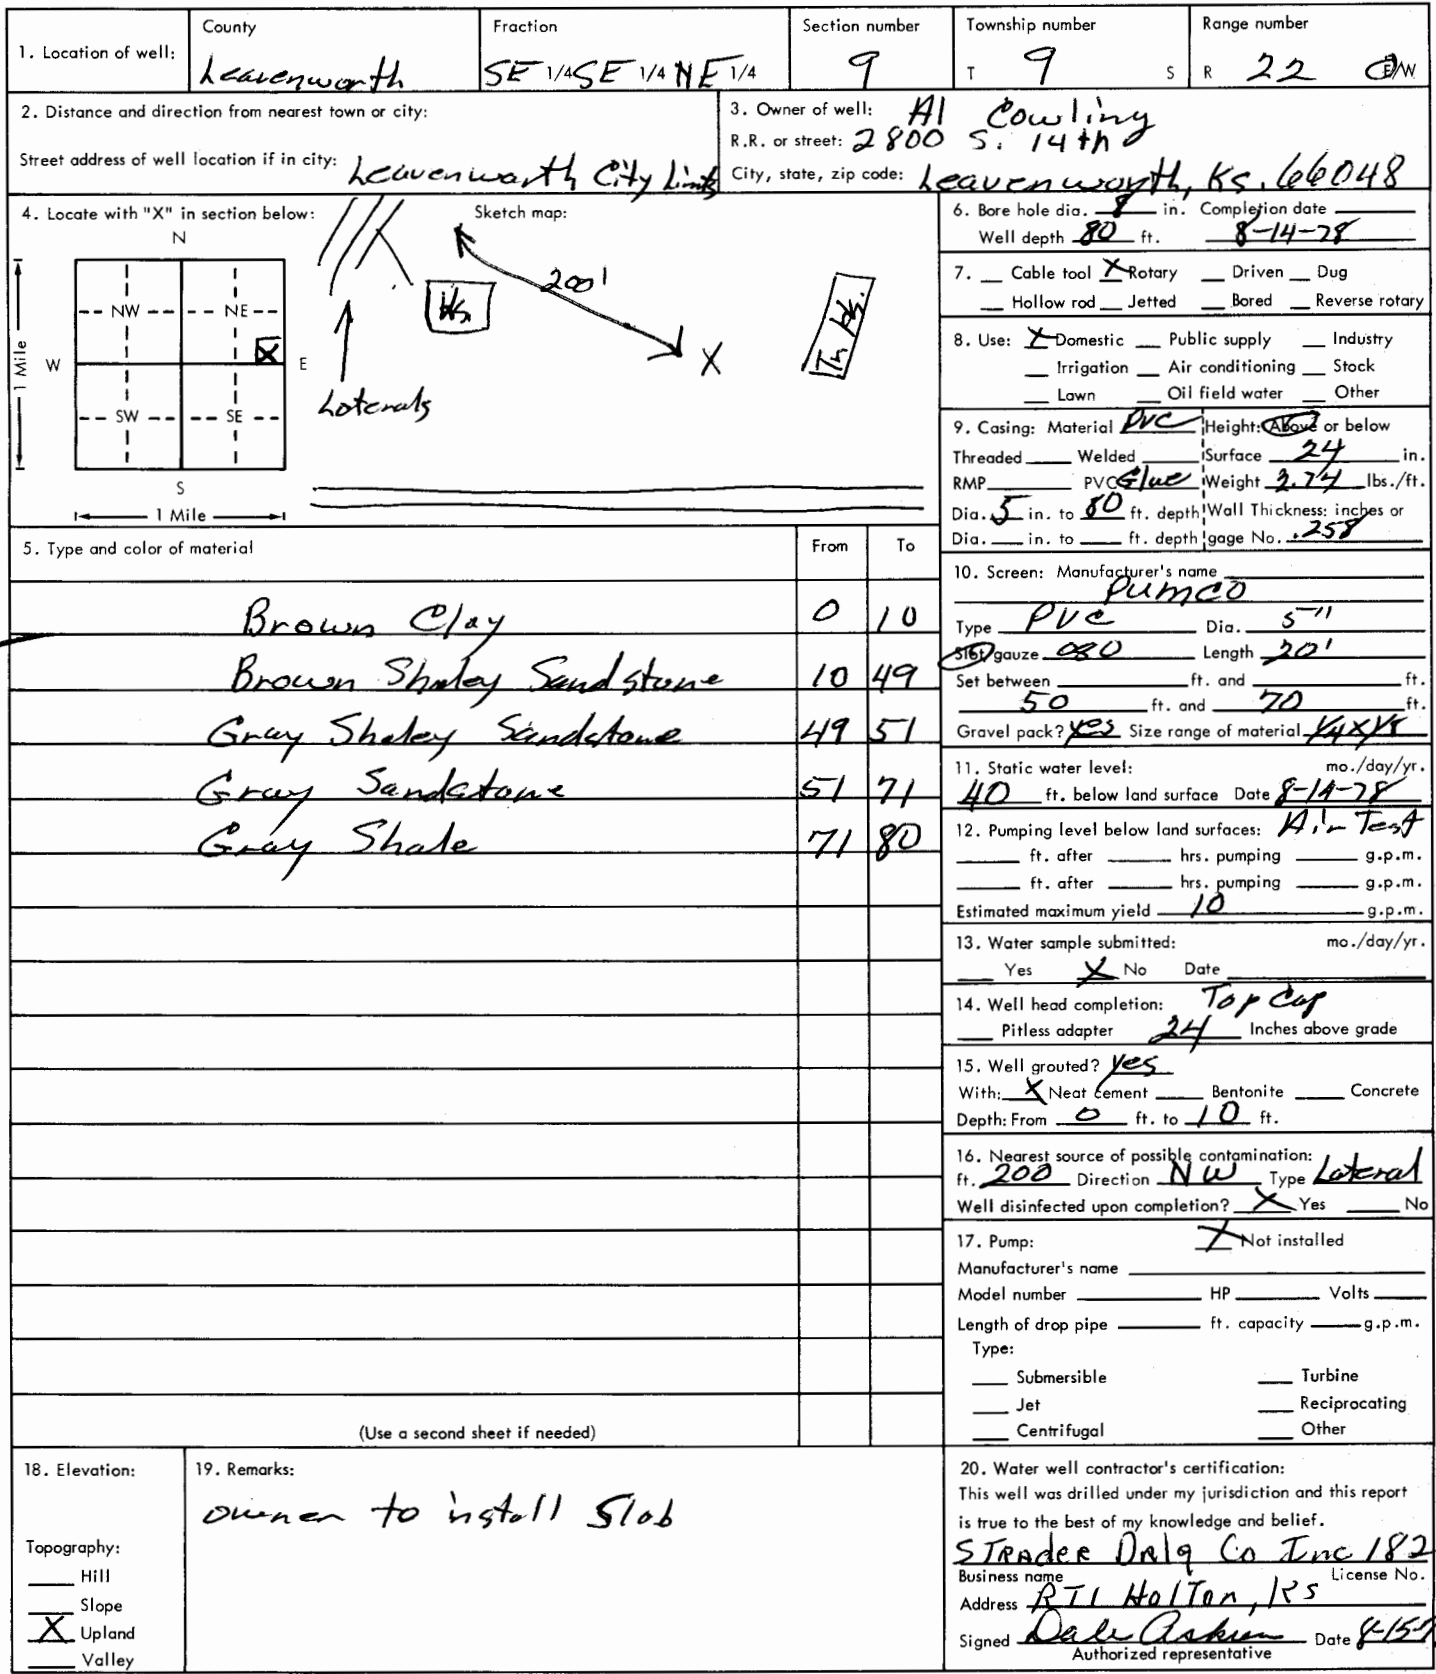 1. Location of well: County Leavenworth Fraction SE 1/4 SE 1/4 NE 1/4 Section number 9 Township number T 9 S Range number R 22 E/W
2. Distance and direction from nearest town or city:
Street address of well location if in city: Leavenworth City Limits
3. Owner of well: Al Cowling
R.R. or street: 2800 S. 14th
City, state, zip code: Leavenworth, Ks. 66048
4. Locate with "X" in section below:
N
NW NE
W X E
SW SE
S
1 Mile
1 Mile
Sketch map:
Hs.
200'
X
Laterals
5. Type and color of material From To
Brown Clay 0 10
Brown Shaley Sandstone 10 49
Gray Shaley Sandstone 49 51
Gray Sandstone 51 71
Gray Shale 71 80
(Use a second sheet if needed)
6. Bore hole dia. 8 in. Completion date
Well depth 80 ft. 8-14-78
7. Cable tool X Rotary Driven Dug
Hollow rod Jetted Bored Reverse rotary
8. Use: X Domestic Public supply Industry
Irrigation Air conditioning Stock
Lawn Oil field water Other
9. Casing: Material PVC Height: Above or below
Threaded Welded Surface 24 in.
RMP PVC Glue Weight 2.74 lbs./ft.
Dia. 5 in. to 80 ft. depth Wall Thickness: inches or
Dia. in. to ft. depth gage No. .258
10. Screen: Manufacturer's name
Pumco
Type PVC Dia. 5"
Slot/gauze 080 Length 20'
Set between ft. and ft.
50 ft. and 70 ft.
Gravel pack? yes Size range of material 1/4 x 1/8
11. Static water level: mo./day/yr.
40 ft. below land surface Date 8-14-78
12. Pumping level below land surfaces: Air Test
ft. after hrs. pumping g.p.m.
ft. after hrs. pumping g.p.m.
Estimated maximum yield 10 g.p.m.
13. Water sample submitted: mo./day/yr.
Yes X No Date
14. Well head completion: Top Cap
Pitless adapter 24 Inches above grade
15. Well grouted? yes
With: X Neat cement Bentonite Concrete
Depth: From 0 ft. to 10 ft.
16. Nearest source of possible contamination:
ft. 200 Direction NW Type Lateral
Well disinfected upon completion? X Yes No
17. Pump: X Not installed
Manufacturer's name
Model number HP Volts
Length of drop pipe ft. capacity g.p.m.
Type:
Submersible Turbine
Jet Reciprocating
Centrifugal Other
18. Elevation:
Topography:
Hill
Slope
X Upland
Valley
19. Remarks:
owner to install Slab
20. Water well contractor's certification:
This well was drilled under my jurisdiction and this report
is true to the best of my knowledge and belief.
Strader Drlg Co Inc 182
Business name License No.
Address RT1 Holton, Ks
Signed Dale Date 8-15-7
Authorized representative